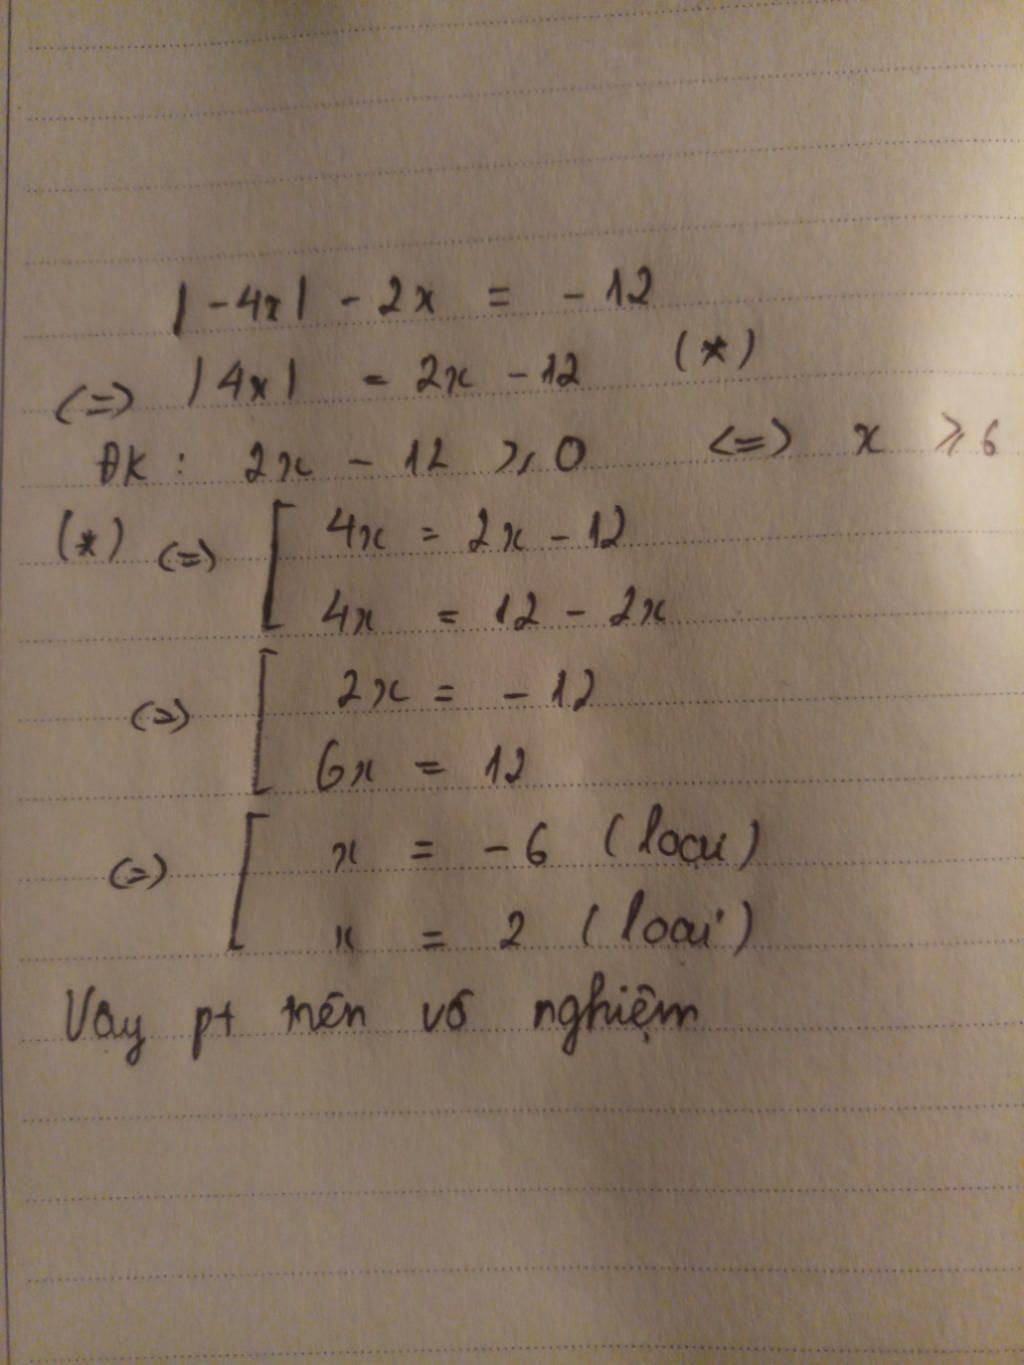 |-4x| - 2x = -12
<=> |4x| = 2x - 12 (*)
ĐK: 2x - 12 ⩾ 0 <=> x ⩾ 6
(*) <=> [ 4x = 2x - 12
4x = 12 - 2x
<=> [ 2x = -12
6x = 12
<=> [ x = -6 (loại)
x = 2 (loại)
Vậy pt trên vô nghiệm